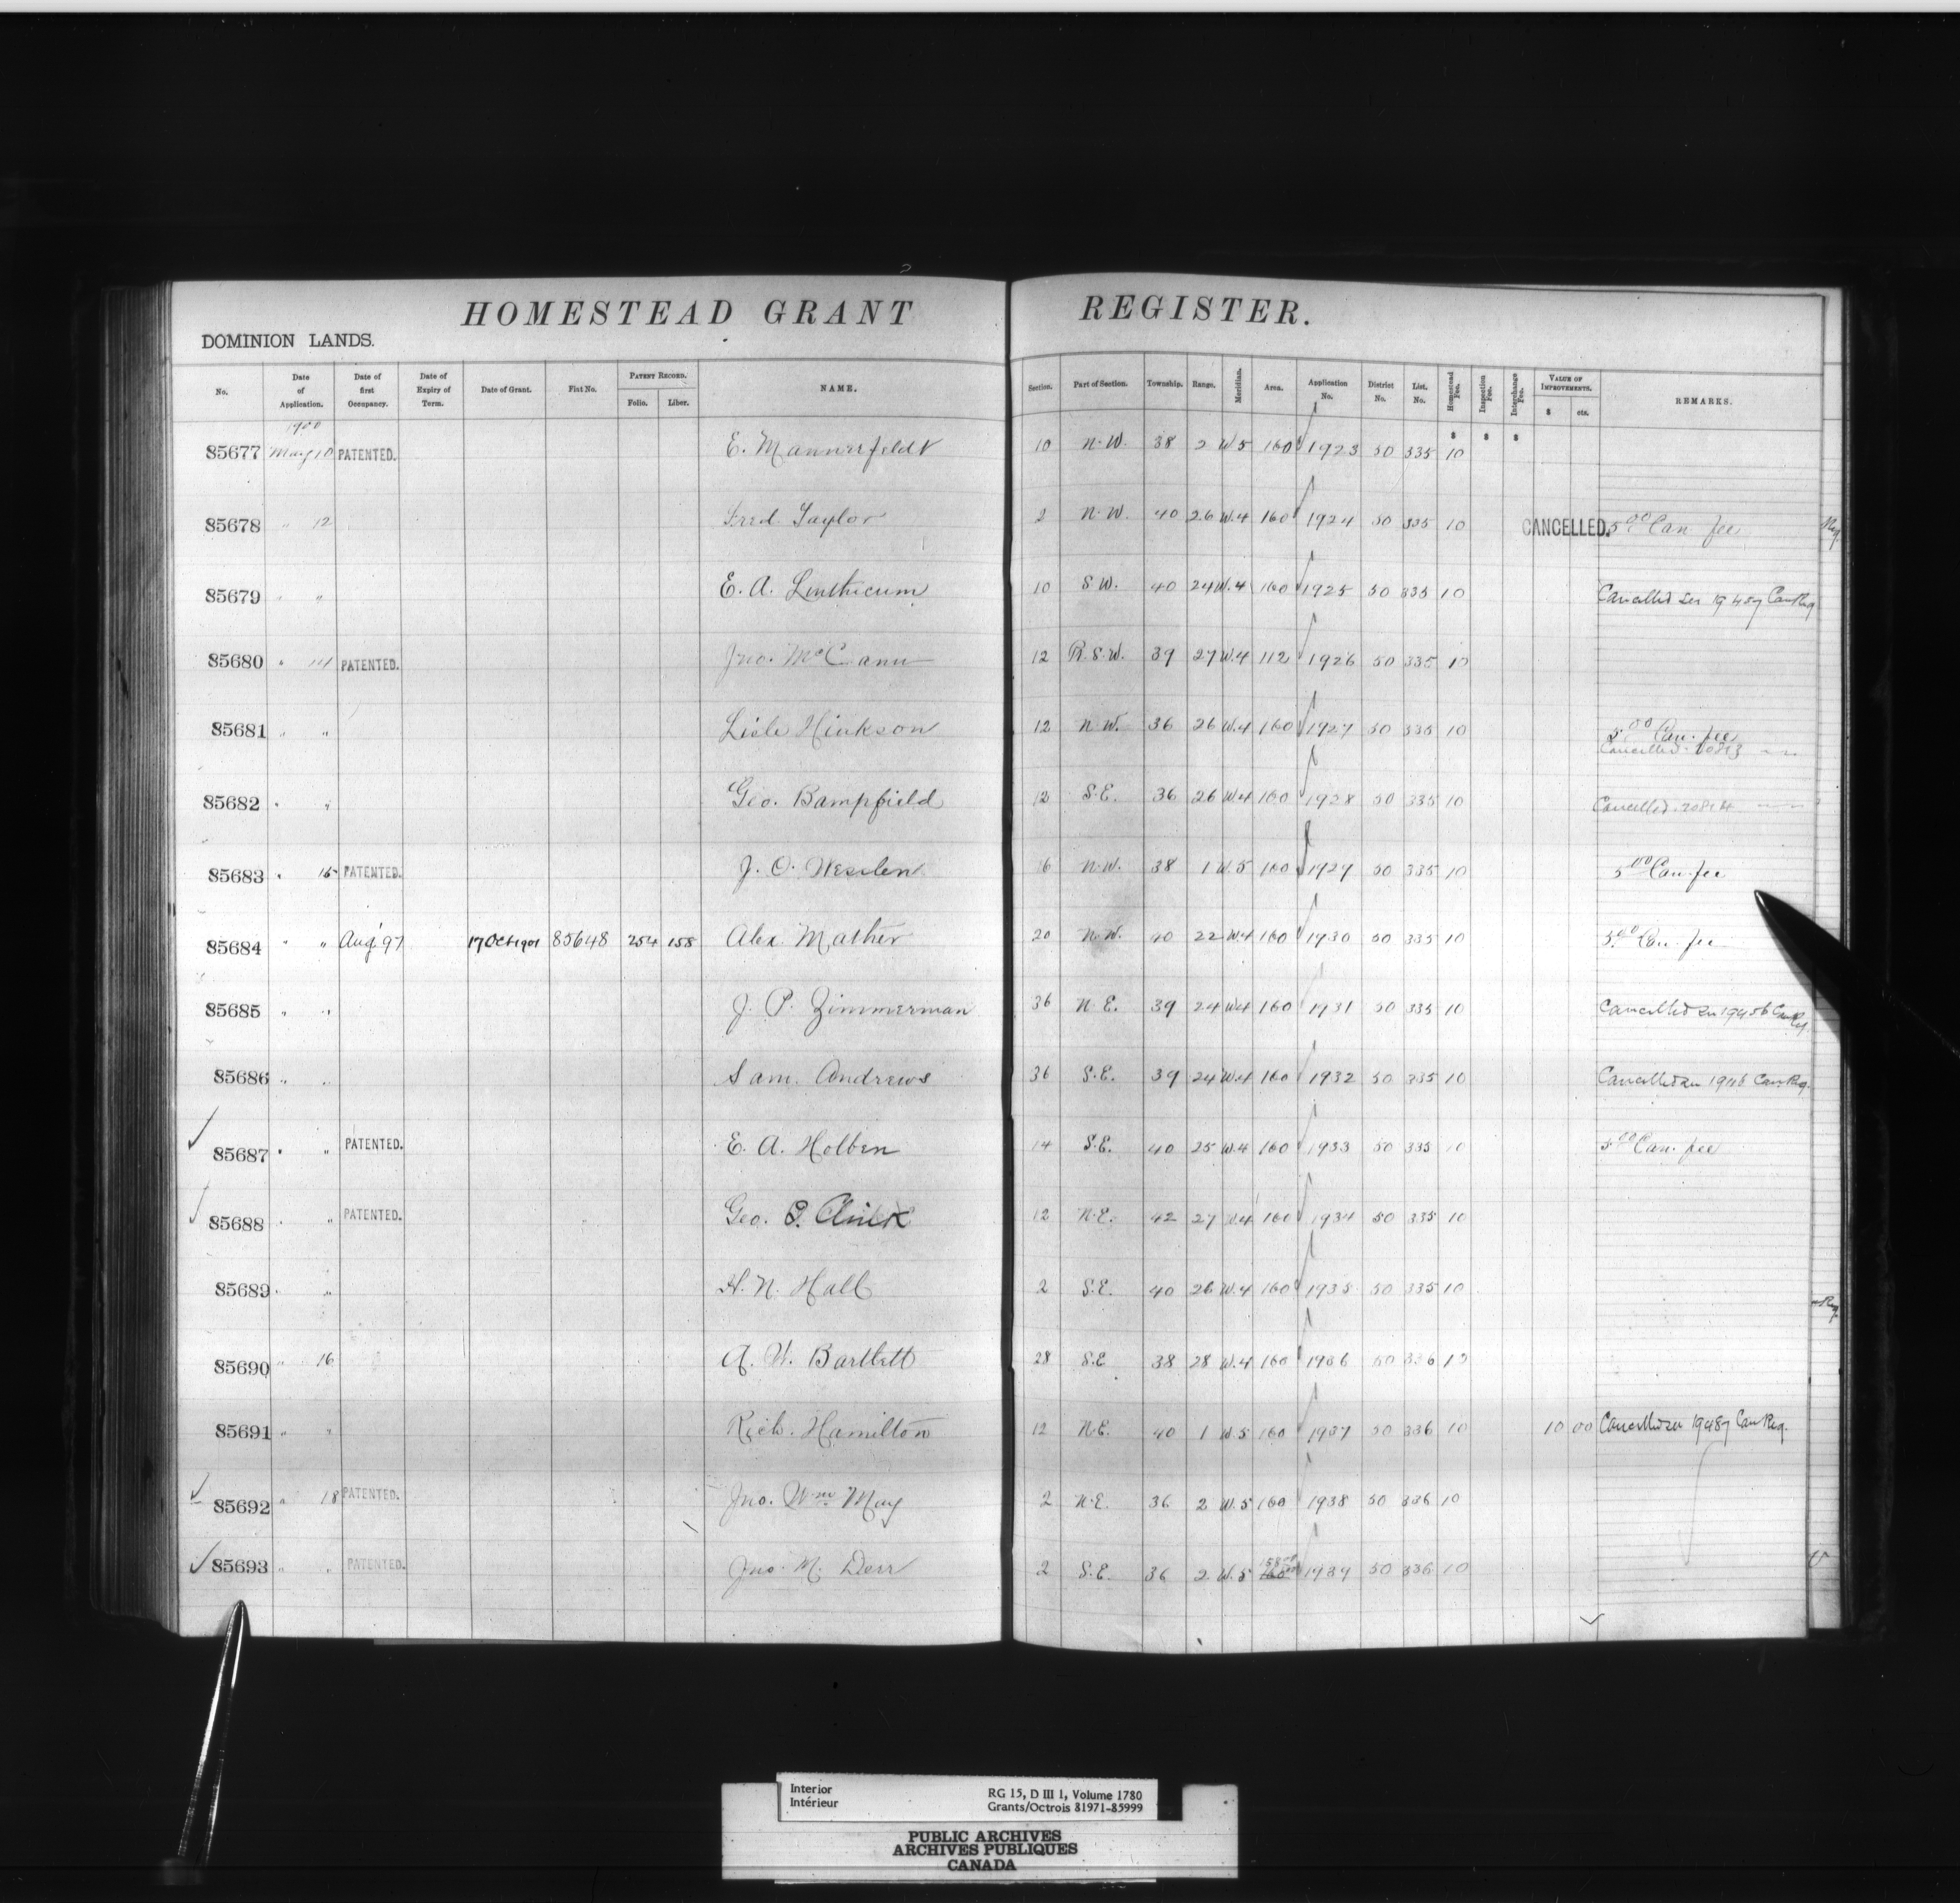 HOMESTEAD GRANT REGISTER.
DOMINION LANDS.
No. Date of Application. Date of first Occupancy. Date of Expiry of Term. Date of Grant. Fiat No. PATENT RECORD. Folio. Liber. NAME. Section. Part of Section. Township. Range. Meridian. Area. Application No. District No. List. No. Homestead Fee. Inspection Fee. Interchange Fee. VALUE OF IMPROVEMENTS. $ cts. REMARKS.
1900
$ $ $
85677 May 10 PATENTED. E. Mannerfeldt 10 N.W. 38 2 W.5 160 1923 50 335 10
85678 " 12 Fred Taylor 2 N.W. 40 26 W.4 160 1924 50 335 10 CANCELLED. 5.00 Can fee
85679 " " E. A. Linthicum 10 S.W. 40 24 W.4 160 1925 50 335 10 Cancelled
85680 " 14 PATENTED. Jno. McCann 12 R.S.W. 39 27 W.4 112 1926 50 335 10
85681 " " Lisle Hinkson 12 N.W. 36 26 W.4 160 1927 50 335 10 5.00 Can. fee
Cancelled
85682 " " Geo. Bampfield 12 S.E. 36 26 W.4 160 1928 50 335 10 Cancelled
85683 " 15 PATENTED. J. O. Weslen 16 N.W. 38 1 W.5 160 1929 50 335 10 5.00 Can. fee
85684 " " Aug' 97 17 Oct 1901 85648 254 158 Alex. Mather 20 N.W. 40 22 W.4 160 1930 50 335 10 5.00 Can. fee
85685 " " J. P. Zimmerman 36 N.E. 39 24 W.4 160 1931 50 335 10 Cancelled
85686 " " Sam. Andrews 36 S.E. 39 24 W.4 160 1932 50 335 10 Cancelled
85687 " " PATENTED. E. A. Holben 14 S.E. 40 25 W.4 160 1933 50 335 10 5.00 Can. fee
85688 " " PATENTED. Geo. 12 N.E. 42 27 W.4 160 1934 50 335 10
85689 " " H. N. Hall 2 S.E. 40 26 W.4 160 1935 50 335 10
85690 " 16 A. W. Bartlett 28 S.E. 38 28 W.4 160 1936 50 336 10
85691 " " Rich. Hamilton 12 N.E. 40 1 W.5 160 1937 50 336 10 10 00 Cancelled 19487 Can Reg.
85692 " 18 PATENTED. Jno. Wm May 2 N.E. 36 2 W.5 160 1938 50 336 10
85693 " " PATENTED. Jno. M. Derr 2 S.E. 36 2 W.5 158 160 1939 50 336 10
Interior
Intérieur
RG 15, D III 1, Volume 1780
Grants/Octrois 81971-85999
PUBLIC ARCHIVES
ARCHIVES PUBLIQUES
CANADA